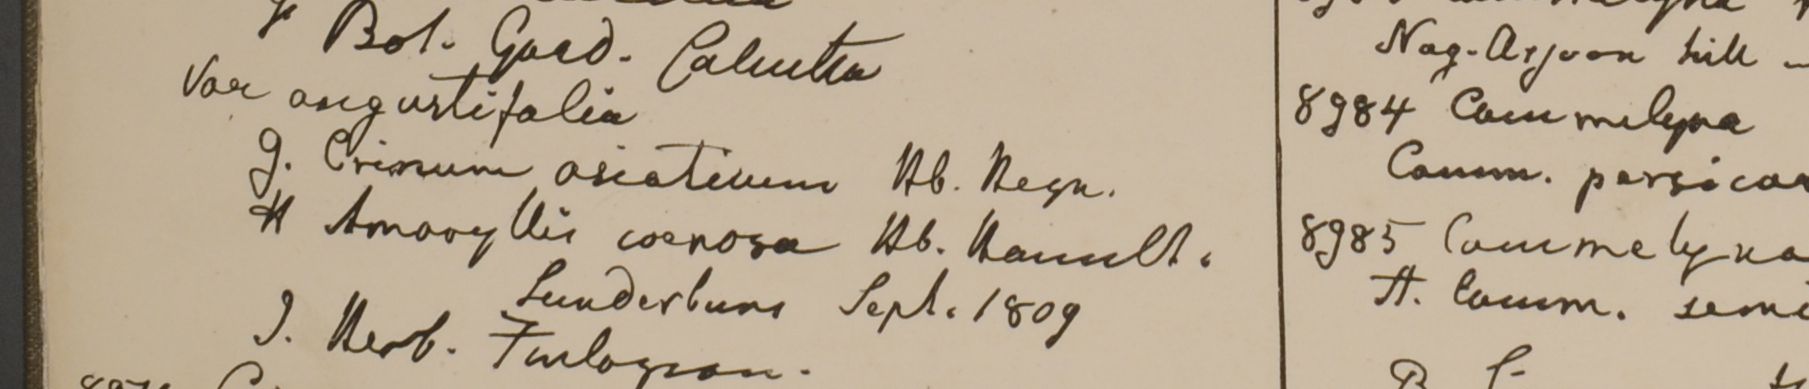 Bot. Gard. Calcutta
Var angustifolia
G. Crinum asiaticum Hb. Heyn.
H Amaryllis coenosa Hb. Hamilt.
Sunderbuns Sept. 1809
I. Herb. Finlayson.
Nag-Arjoon hill
8984 Commelyna
Comm. persicar
8985 Commelyna
A. Comm. semi